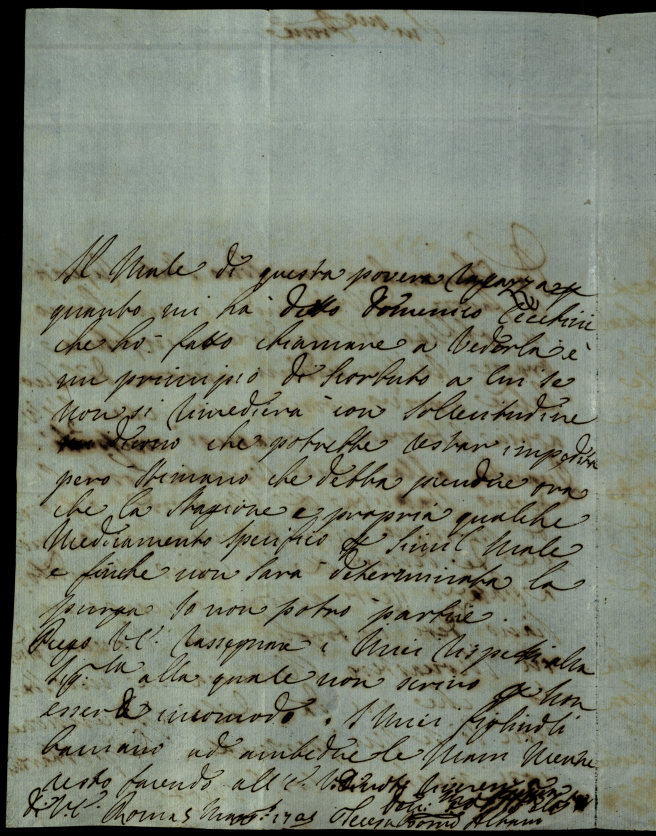 Il Male di questa povera Ragazza p
quanto mi ha detto Domenico Cecchini
che hò fatto chiamare a Vederla è
un principio di Scorbuto a cui se
non si rimedierà con sollecitudine
che potrebbe restar impedita
però stimano che debba prendere ora
che la stagione e propria qualche
Medicamento specifico p simil Male
e finche non sarà determinata la
purga Io non potrò partire.
Prego V.E. rassegnare i miei rispetti alla
Sig.ra alla quale non scrivo p non
esserle incomodo. I miei figlioli
baciano ad ambedue le Mani Mentre
resto facendo all' E.V.
D. V.E. Roma 5 Teresa Albani